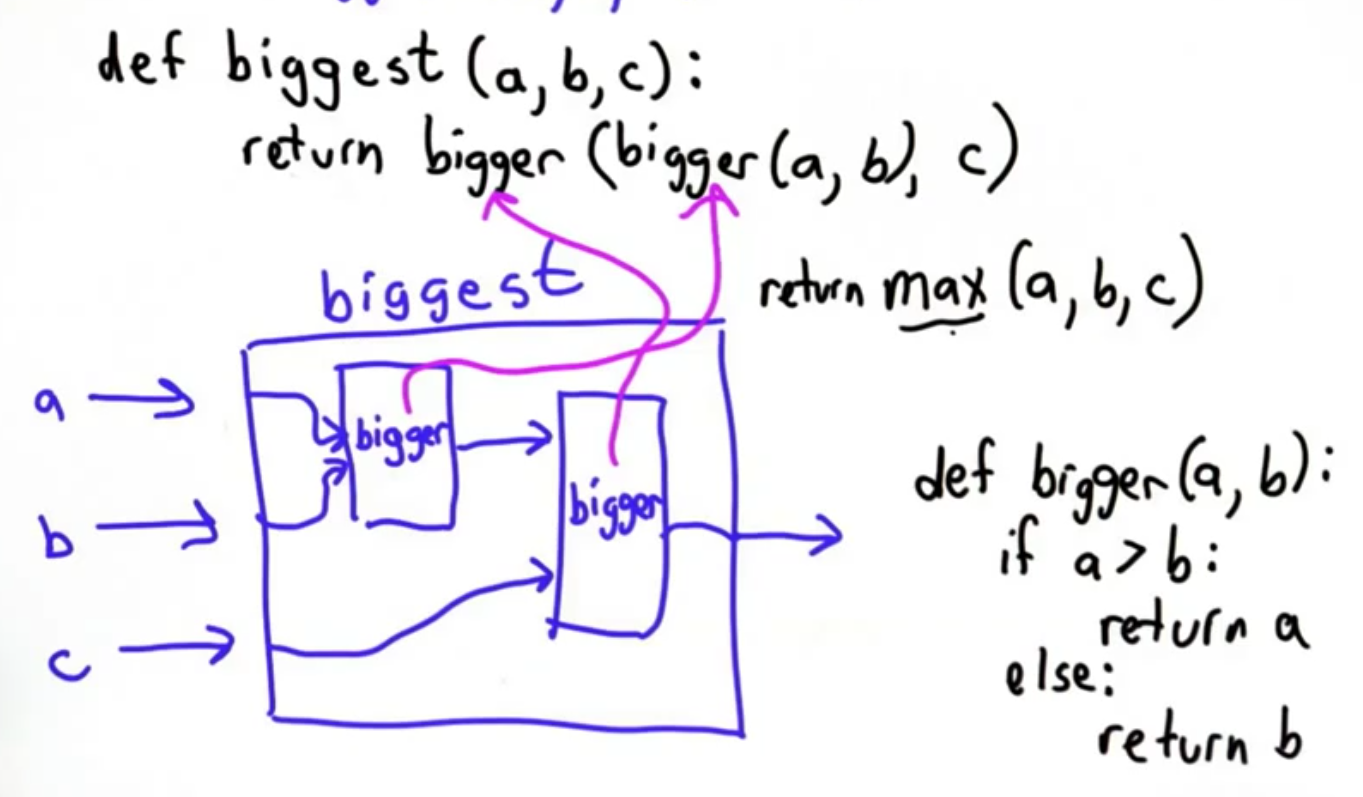 def biggest (a, b, c):
return bigger (bigger(a, b), c)
biggest
return max (a, b, c)
a
bigger
bigger
b
c
def bigger(a, b):
if a > b:
return a
else:
return b